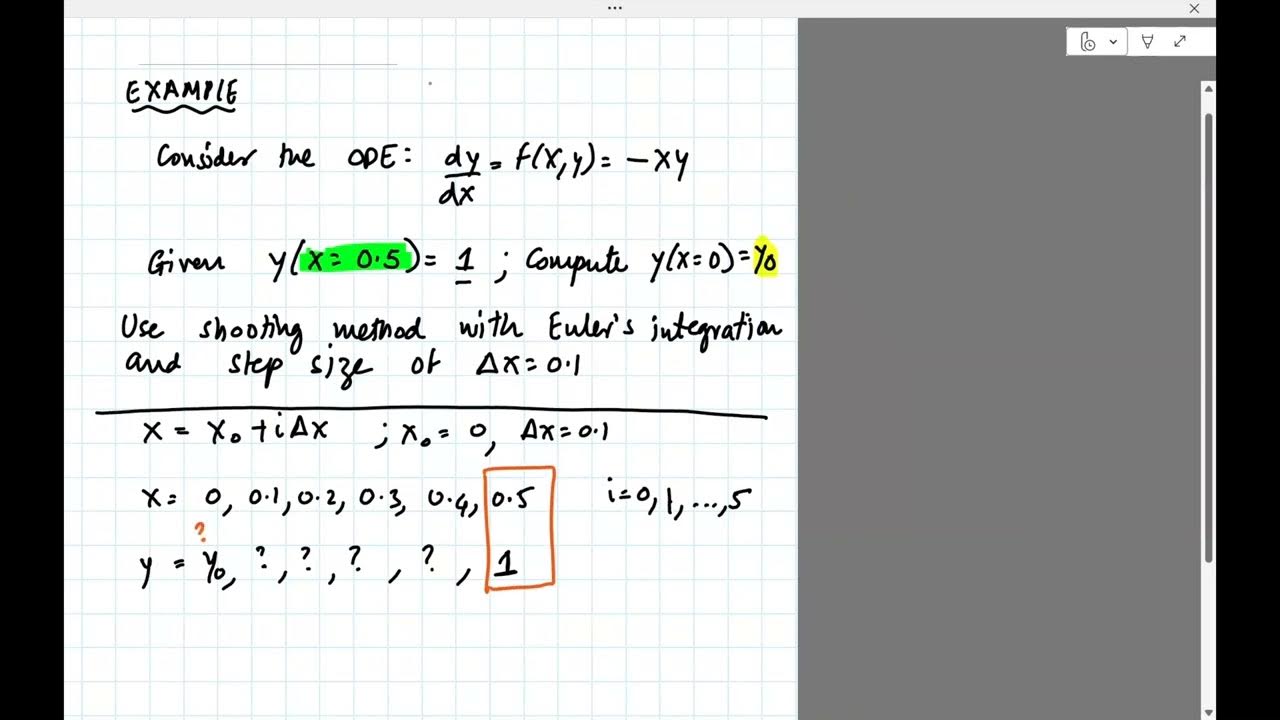 EXAMPLE
Consider the ODE: dy/dx = f(x,y) = -xy
Given y(x = 0.5) = 1 ; Compute y(x=0) = y₀
Use shooting method with Euler's integration
and step size of Δx = 0.1
x = x₀ + iΔx ; x₀ = 0, Δx = 0.1
x = 0, 0.1, 0.2, 0.3, 0.4, 0.5 i = 0, 1, ..., 5
?
y = y₀, ?, ?, ?, ?, 1